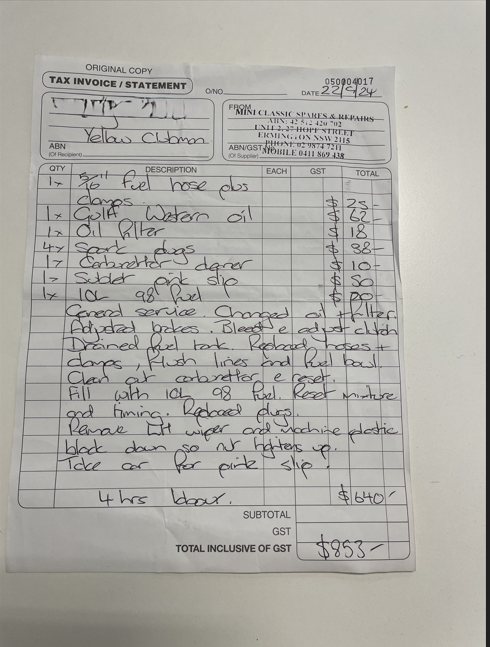 ORIGINAL COPY
TAX INVOICE / STATEMENT
O/NO.
050004017
DATE 22/5/24
Yellow Clubman
ABN
(Of Recipient)
FROM
MINI CLASSIC SPARES & REPAIRS
ABN: 42 512 420 702
UNIT 2, 27 HOPE STREET
ERMINGTON NSW 2115
PHONE 02 9874 7211
MOBILE 0411 869 438
ABN/GST No.
(Of Supplier)
QTY DESCRIPTION EACH GST TOTAL
1x 5/16" fuel hose plus
clamps. $ 25-
1x Gulf Western oil $ 62-
1x oil filter $ 18
4x Spark plugs $ 38-
1x Carburettor cleaner $ 10-
1x Sublet pink slip $ 50
1x 10L 98 fuel $
General service. Changed oil + filter.
Adjusted brakes. Bleed & adjust clutch
Drained fuel tank. Replaced hoses +
clamps, flush lines and fuel bowl.
Clean out carburettor & reset.
Fill with 10L 98 fuel. Reset mixture
and timing. Replaced plugs.
Remove LH wiper and machine plastic
block down so nut tightens up.
Take car for pink slip.
4 hrs labour. $640-
SUBTOTAL
GST
TOTAL INCLUSIVE OF GST $853-